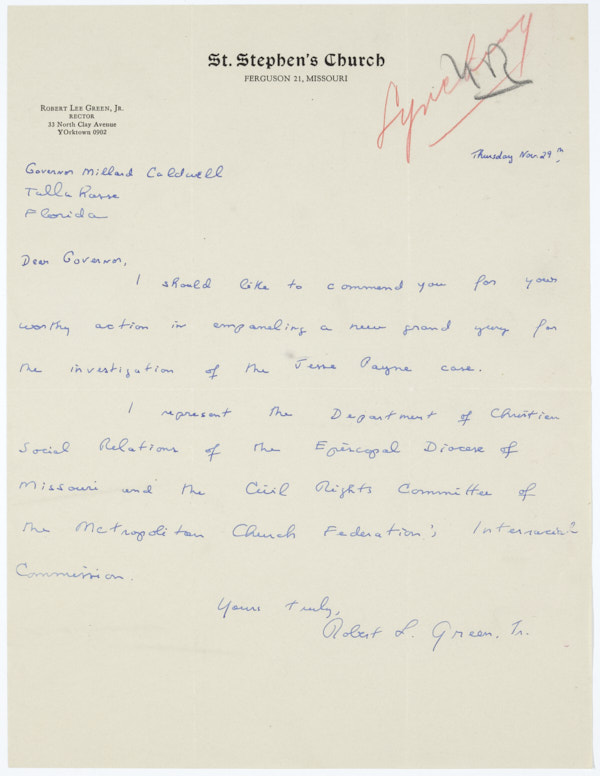 St. Stephen's Church
FERGUSON 21, MISSOURI
Lynching
ROBERT LEE GREEN, JR.
RECTOR
33 North Clay Avenue
YOrktown 0902
Thursday Nov. 29th.
Governor Millard Caldwell
Tallahasse
Florida
Dear Governor,
I should like to commend you for your
worthy action in empaneling a new grand jury for
the investigation of the Jesse Payne case.
I represent the Department of Christian
Social Relations of the Episcopal Diocese of
Missouri and the Civil Rights Committee of
the Metropolitan Church Federation's Interracial
Commission.
Yours truly,
Robert L. Green, Jr.